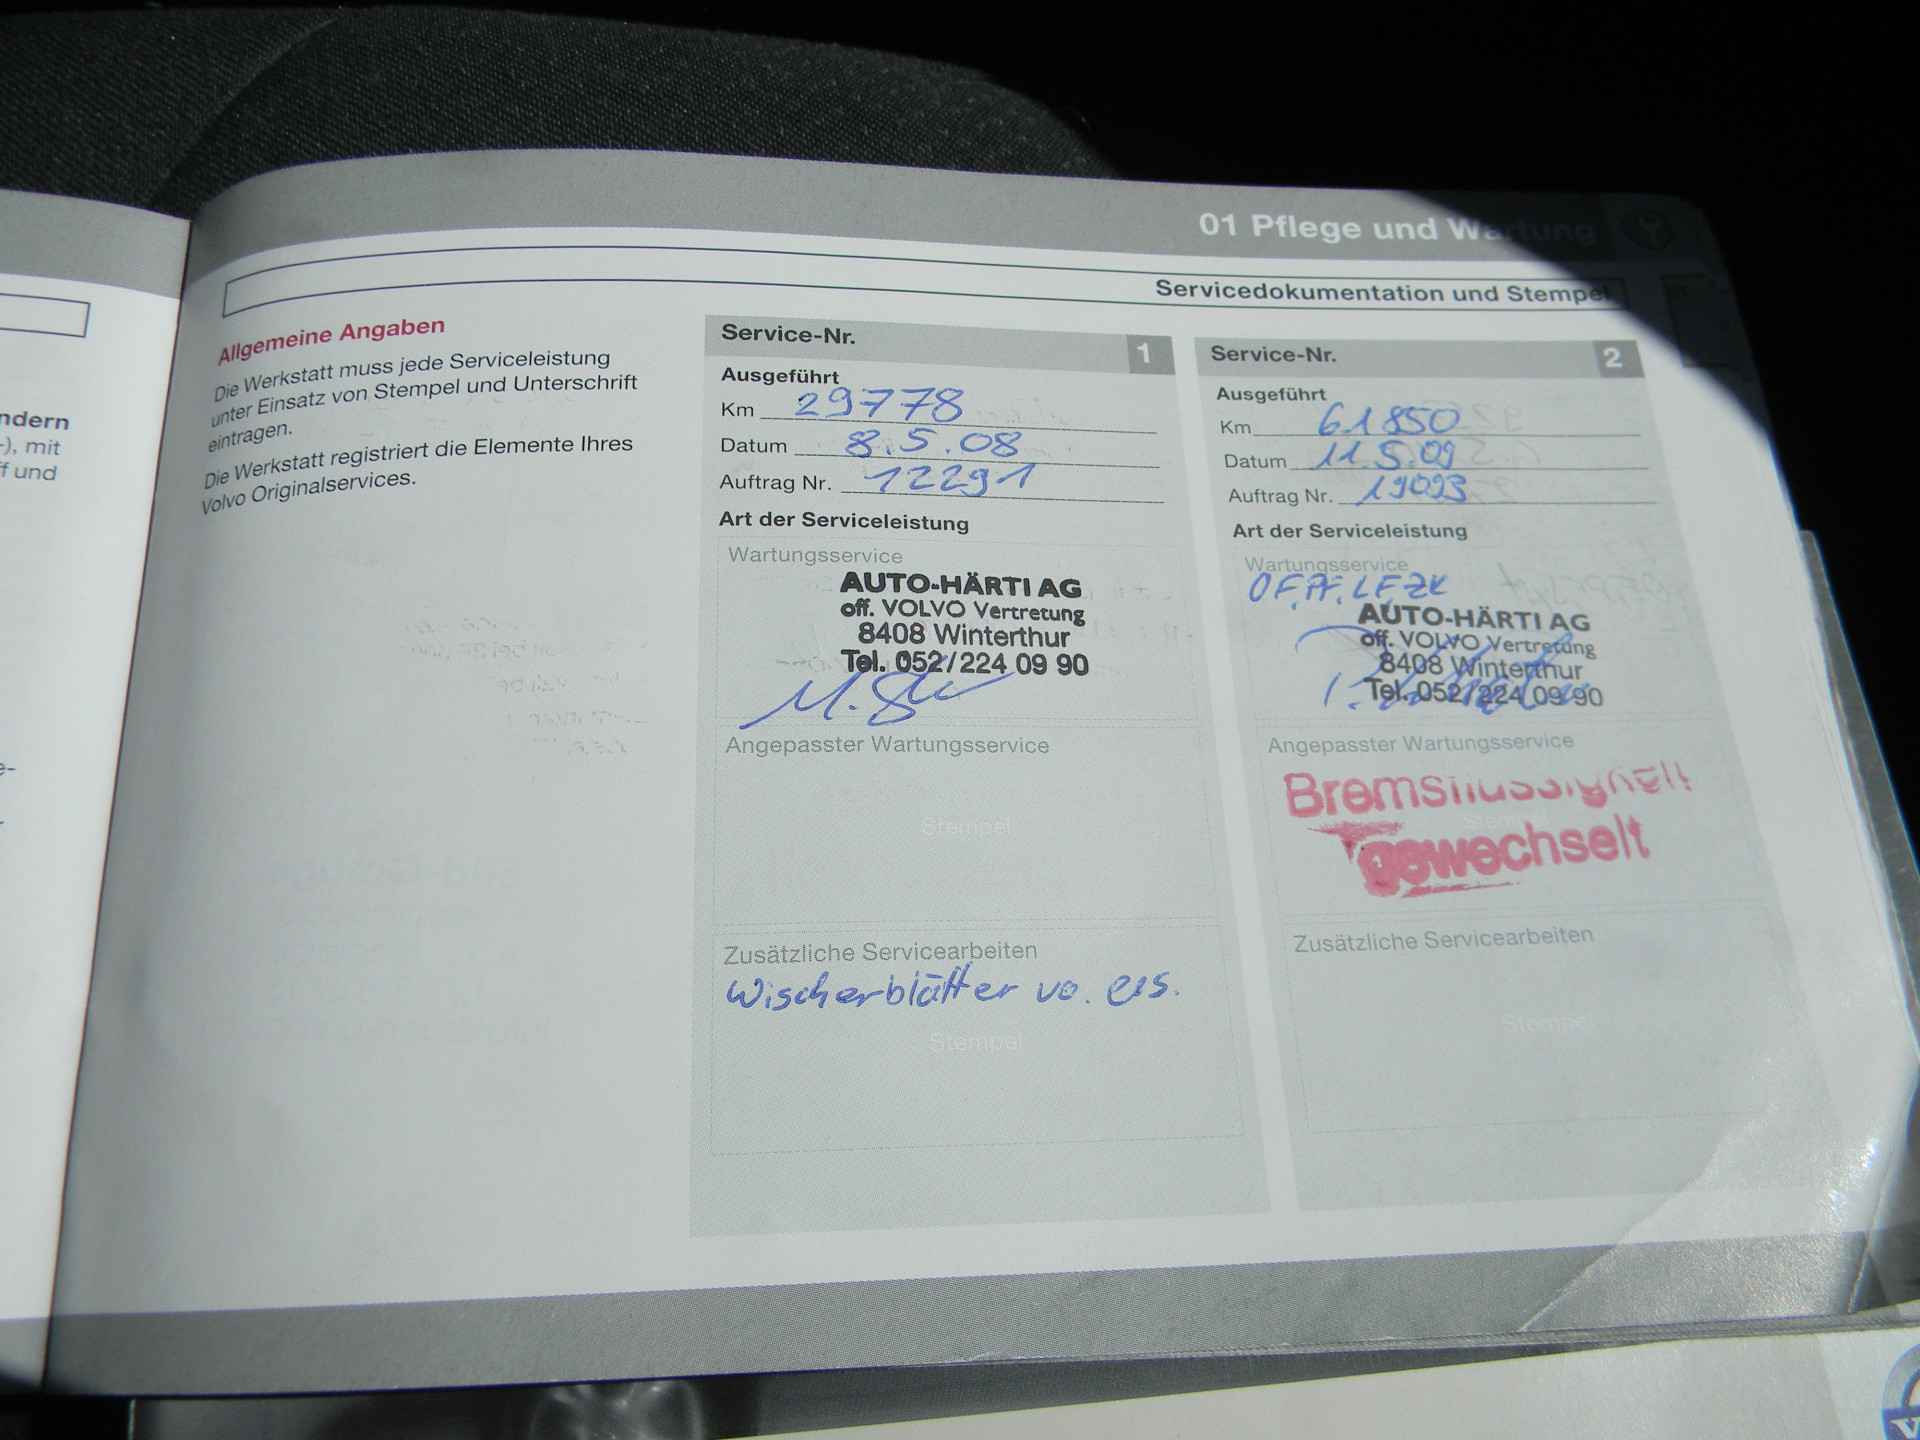 01 Pflege und Wartung
Servicedokumentation und Stempel
ndern
-), mit
ff und
e-
Allgemeine Angaben
Die Werkstatt muss jede Serviceleistung
unter Einsatz von Stempel und Unterschrift
eintragen.
Die Werkstatt registriert die Elemente Ihres
Volvo Originalservices.
Service-Nr. 1
Ausgeführt
Km 29778
Datum 8.5.08
Auftrag Nr. 12291
Art der Serviceleistung
Wartungsservice
AUTO-HÄRTI AG
off. VOLVO Vertretung
8408 Winterthur
Tel. 052/224 09 90
Angepasster Wartungsservice
Stempel
Zusätzliche Servicearbeiten
Wischerblätter vo. ers.
Stempel
Service-Nr. 2
Ausgeführt
Km 61850
Datum 11.5.09
Auftrag Nr. 19093
Art der Serviceleistung
Wartungsservice
OF, PF, LF, ZK
AUTO-HÄRTI AG
off. VOLVO Vertretung
8408 Winterthur
Tel. 052/224 09 90
Angepasster Wartungsservice
Stempel
Bremsflüssigkeit
gewechselt
Zusätzliche Servicearbeiten
Stempel